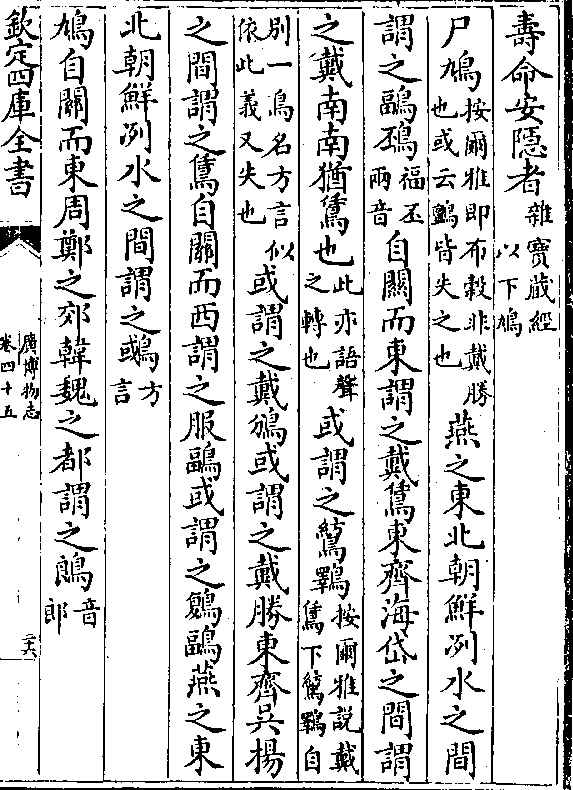 壽命安隱者雜寶藏經以下鳩
尸鳩按爾雅即布穀非戴勝也或云鸇皆失之也燕之東北朝鮮洌水之間
謂之鶝䲹福丕兩音自關而東謂之戴鵀東齊海岱之間謂
之戴南南猶鵀也此亦語聲之轉也或謂之鸋按爾雅說戴鵀下鸋自
別一鳥名方言依此義又失也似或謂之戴鳻或謂之戴勝東齊吳揚
之間謂之鵀自關而西謂之服鶝或謂之鶝燕之東
北朝鮮洌水之間謂之鶰方言
鳩自關而東周鄭之郊韓魏之都謂之䳓音郎
欽定四庫全書
廣博物志
卷四十五
三六